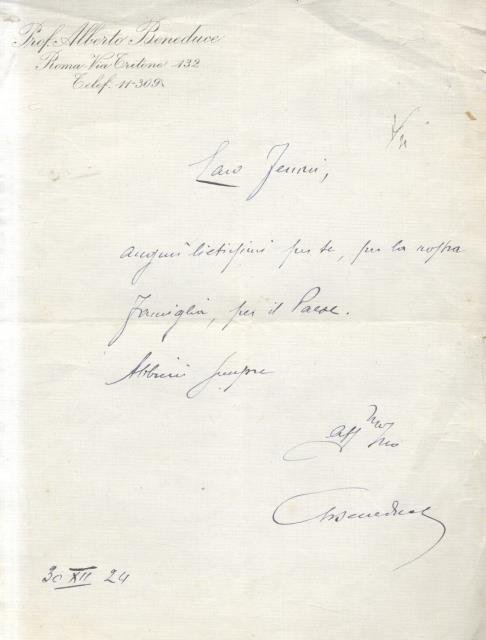 Prof. Alberto Beneduce
Roma Via Tritone 132
Telef. 11-309
Caro
auguri lietissimi per te, per la nostra
Famiglia, per il Paese.
Abbimi sempre
aff mo tuo
ABeneduce
30 XII 24